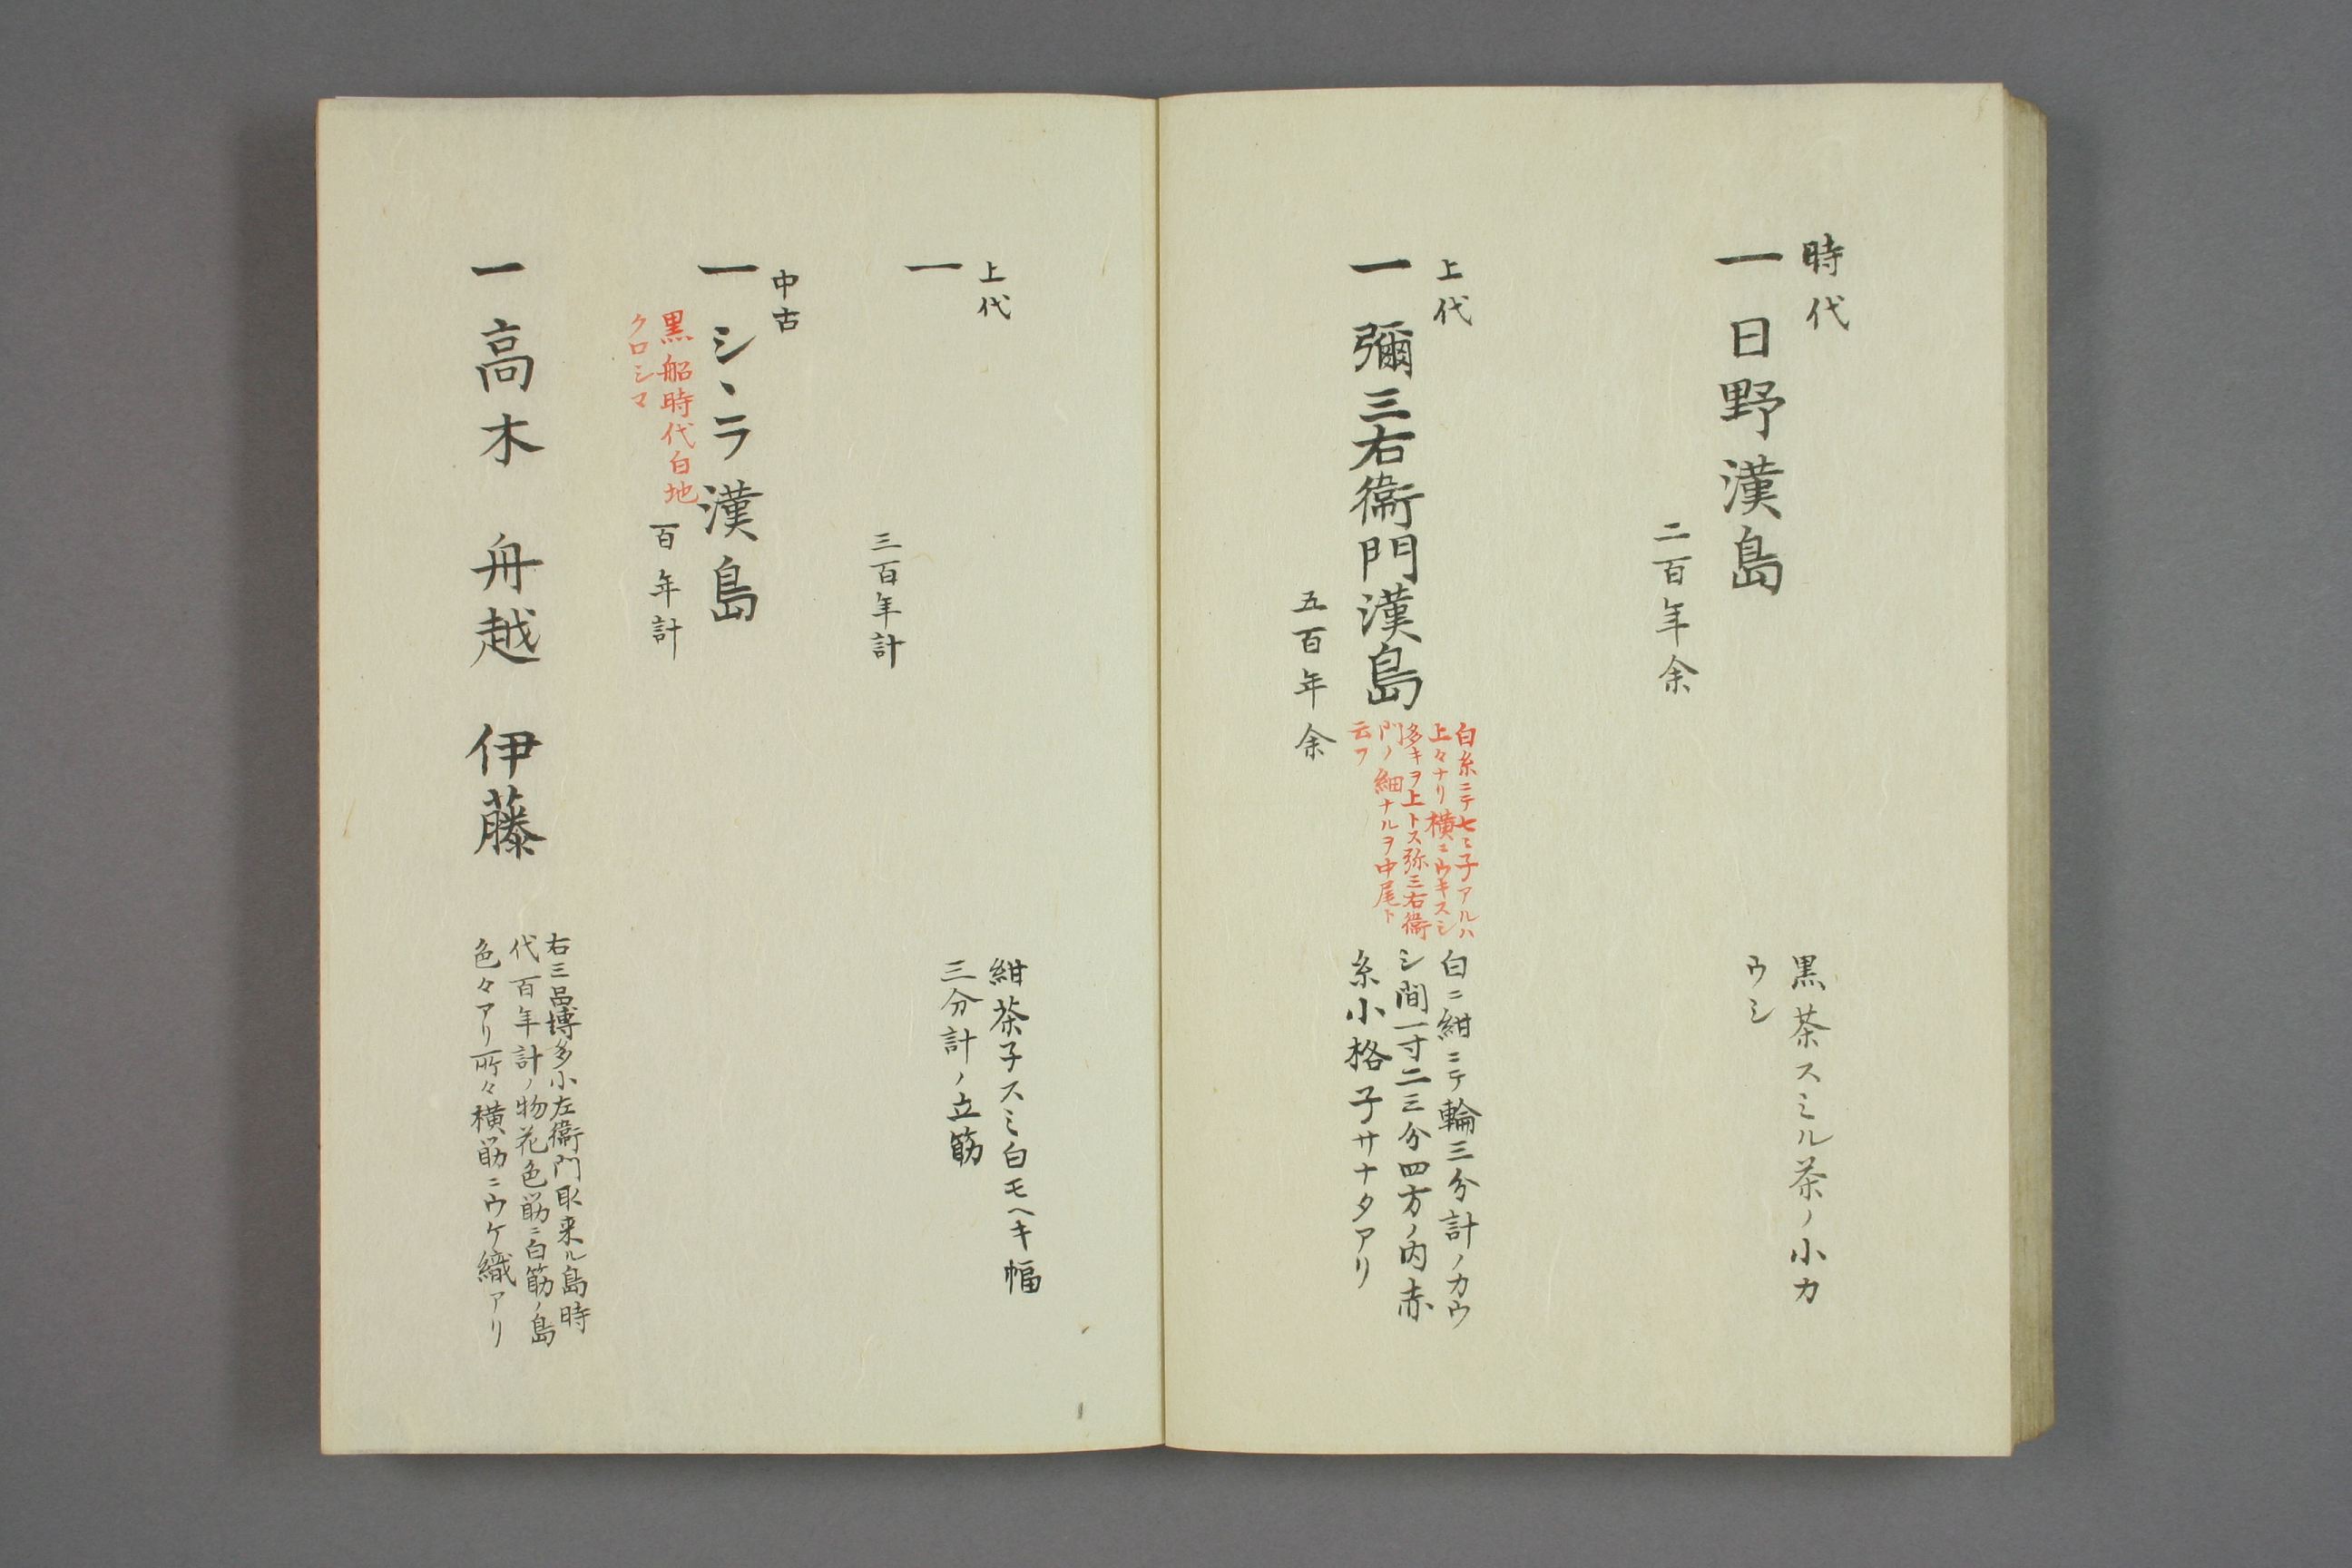 時代
一 日野漢島
二百年余
黒茶スミル茶ノ小カ
ウシ
上代
一 彌三右衞門漢島
白糸ニテ七ミ子アルハ
上々ナリ横ニウキスシ
多キヲ上トス弥三右衞
門ノ細ナルヲ中尾ト
云フ
白ニ紺ニテ輪三分計ノカウ
シ間一寸二三分四方ノ内赤
糸小格子サナタアリ
五百年余
上代
一
三百年計
紺茶子スミ白モヘキ幅
三分計ノ立筋
中古
一 シヽラ漢島
黒船時代白地
クロシマ
百年計
一 高木 舟越 伊藤
右三品博多小左衞門取来ル島時
代百年計ノ物花色筋ニ白筋ノ島
色々アリ所々横筋ニウケ織アリ